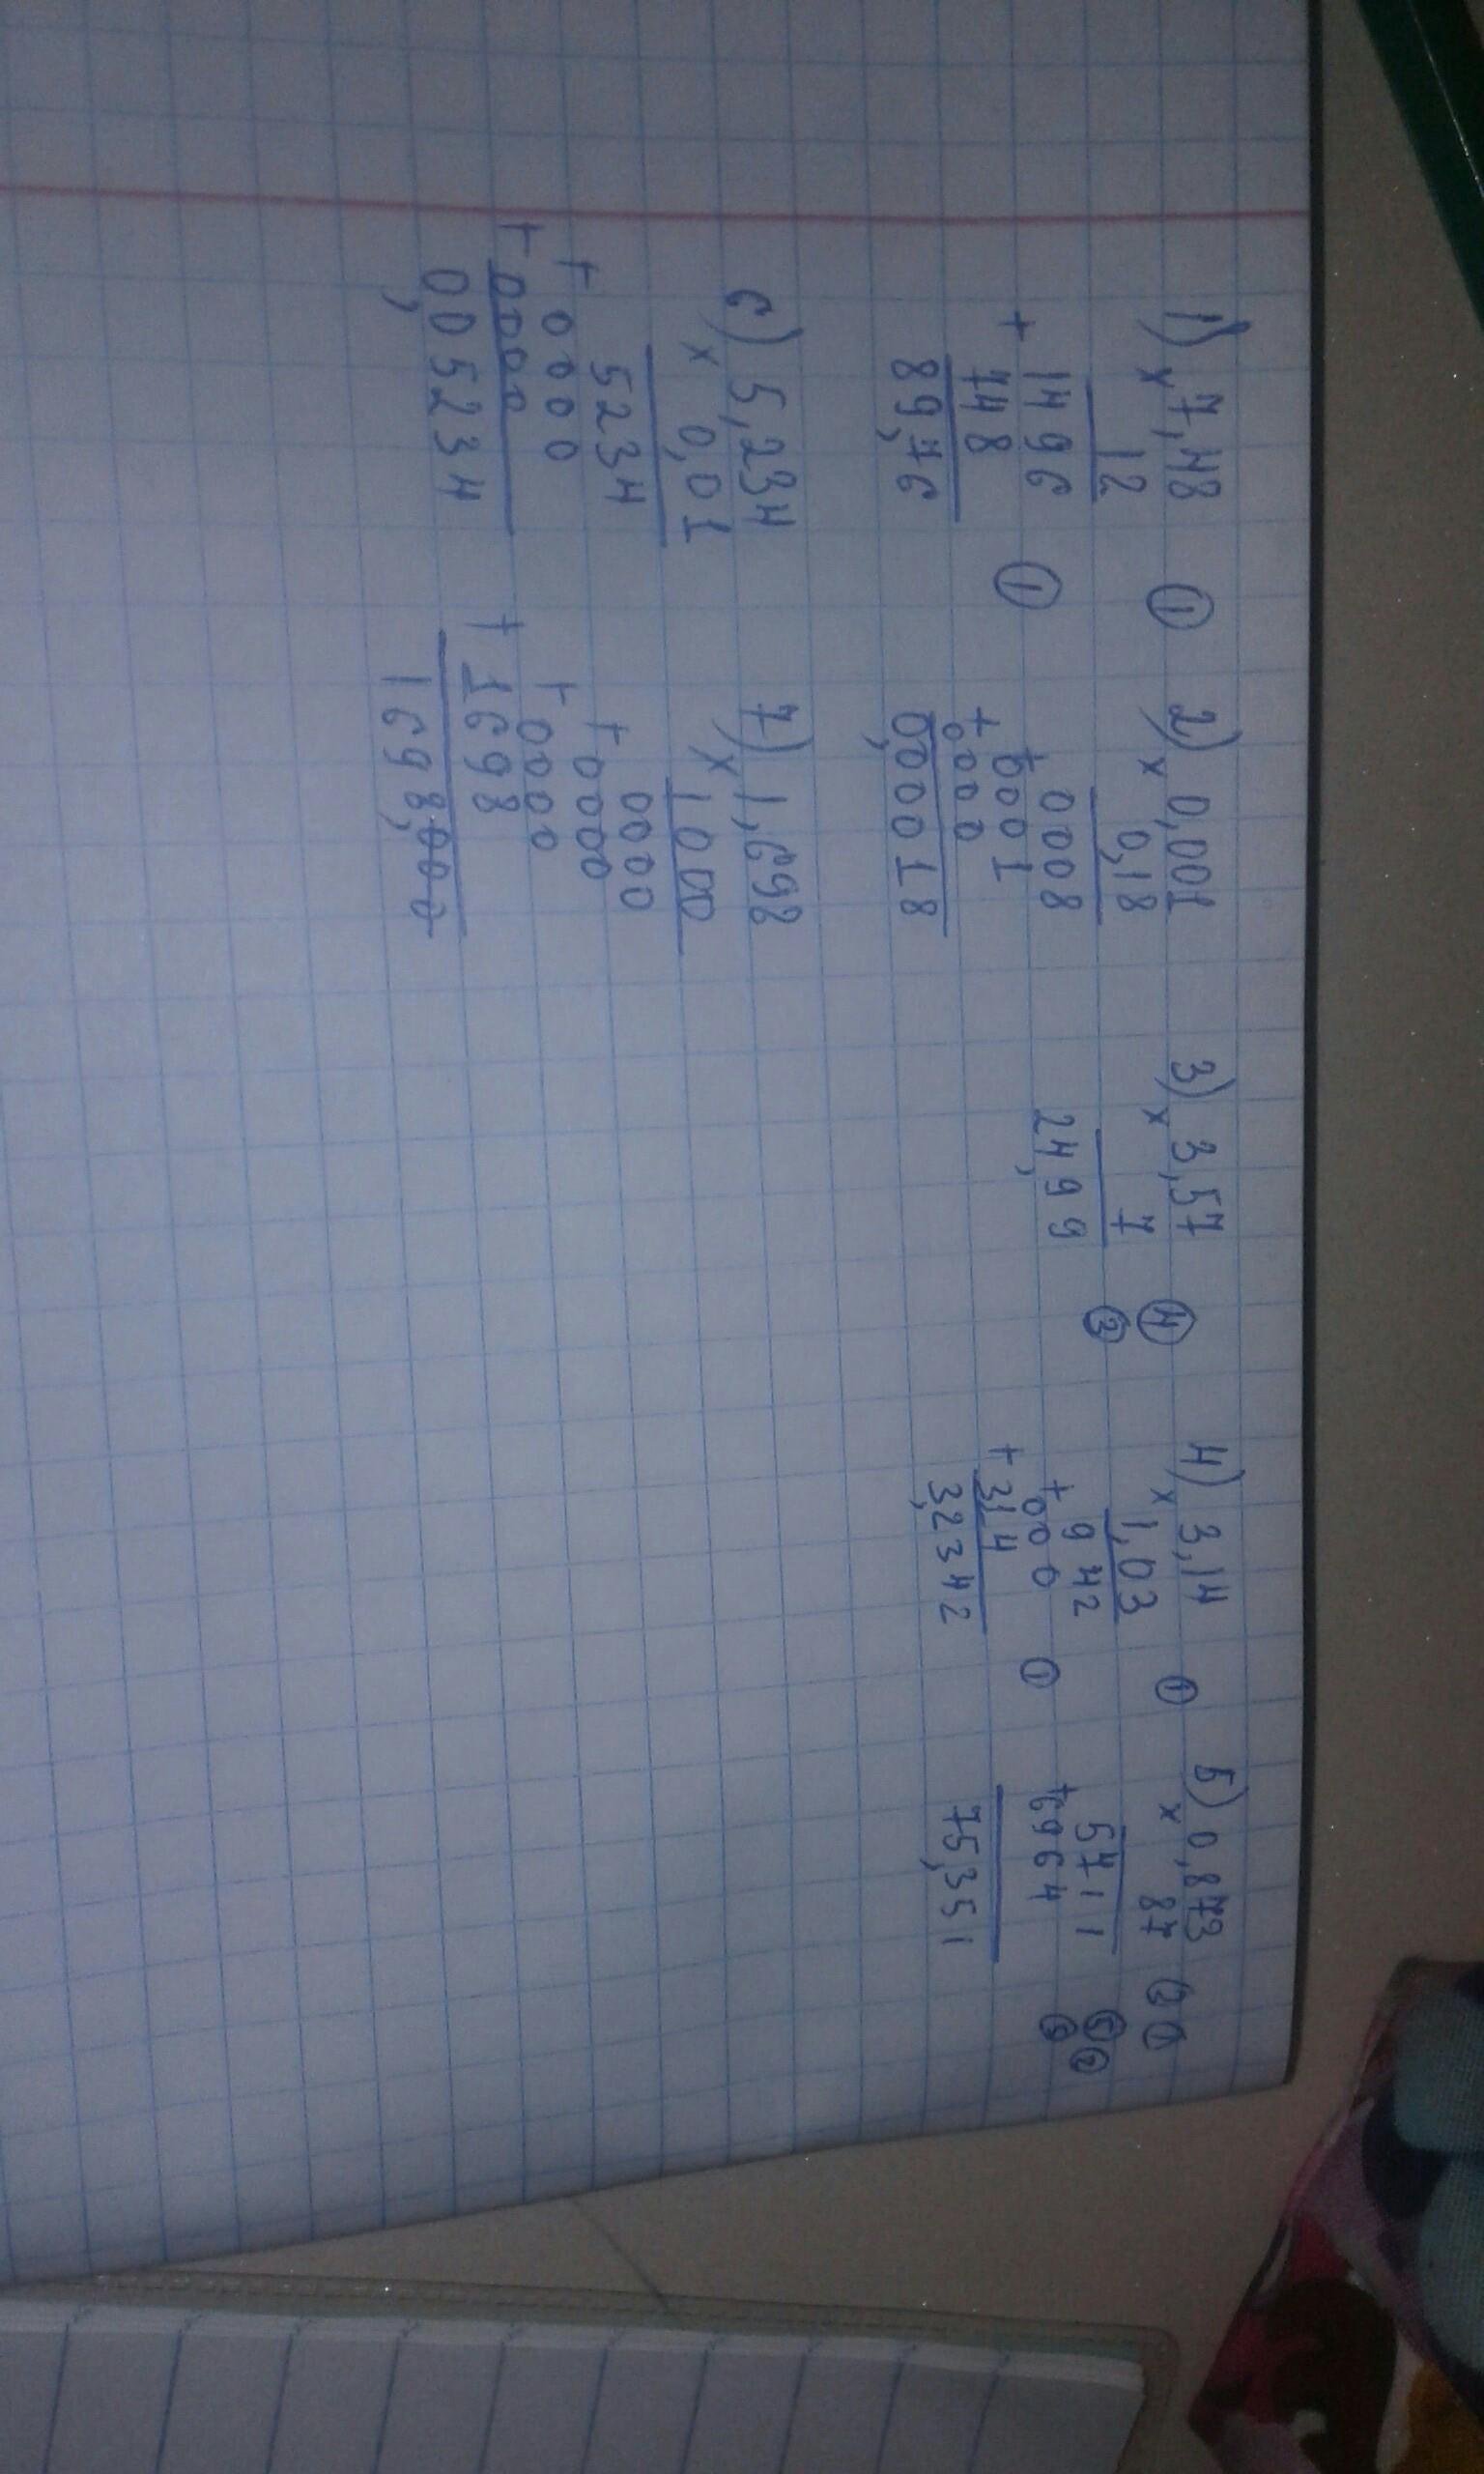 1) 7,48
x 12
1496
+ 748
89,76
①
①
2) 0,001
x 0,18
0008
+ 0001
+ 0000
0,00018
3) 3,57
x 7
24,99
④
③
4) 3,14
x 1,03
942
+ 000
+ 314
3,2342
①
①
5) 0,873
x 87
+ 6964
75,351
6) 5,234
x 0,01
5234
+ 0000
+ 0000
0,05234
7) 1,698
x 1000
0000
+ 0000
+ 0000
+ 1698
1698,000